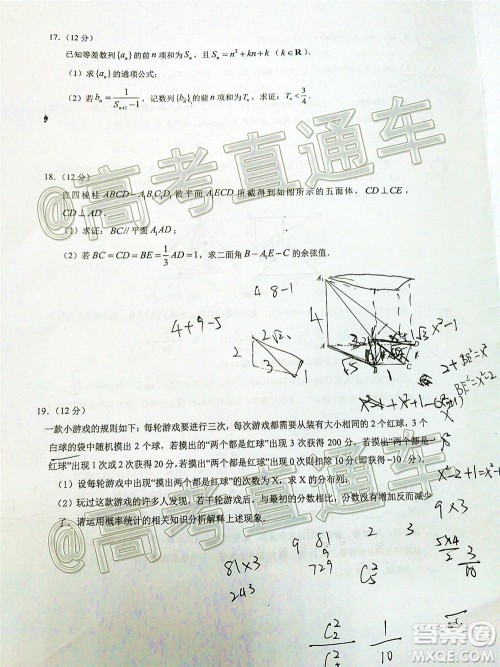 17.（12 分）
已知等差数列{aₙ}的前 n 项和为 Sₙ，且 Sₙ = n² + kn + k（k∈R）.
（1）求{aₙ}的通项公式；
（2）若 bₙ = 1/(Sₙ₊₁−1)，记数列{bₙ}的前 n 项和为Tₙ，求证：Tₙ < 3/4.
18.（12 分）
直四棱柱 ABCD−A₁B₁C₁D₁ 被平面 A₁ECD 所截得到如图所示的五面体，CD⊥CE，
CD⊥AD.
（1）求证：BC//平面 A₁AD；
（2）若 BC=CD=BE=1/3 AD=1，求二面角 B−A₁E−C 的余弦值.
4 8 −1
4+9−5
2 2√2 3 1
19.（12 分）
一款小游戏的规则如下：每轮游戏要进行三次，每次游戏都需要从装有大小相同的 2 个红球，3 个
白球的袋中随机摸出 2 个球，若摸出的“两个都是红球”出现 3 次获得 200 分，若摸出“两个都是
红球”出现 1 次或 2 次获得 20 分，若摸出“两个都是红球”出现 0 次则扣除 10 分（即获得−10 分）.
（1）设每轮游戏中出现“摸出两个都是红球”的次数为 X，求 X 的分布列；
（2）玩过这款游戏的许多人发现，若干轮游戏后，与最初的分数相比，分数没有增加反而减少
了，请运用概率统计的相关知识分析解释上述现象.
9×3
9 81 2 3
81×3 9 C₅² 5×4/2 3/10
243 729
C₂² 1/10
@高考直通车
@高考直通车
答案圈
MXQE.COM